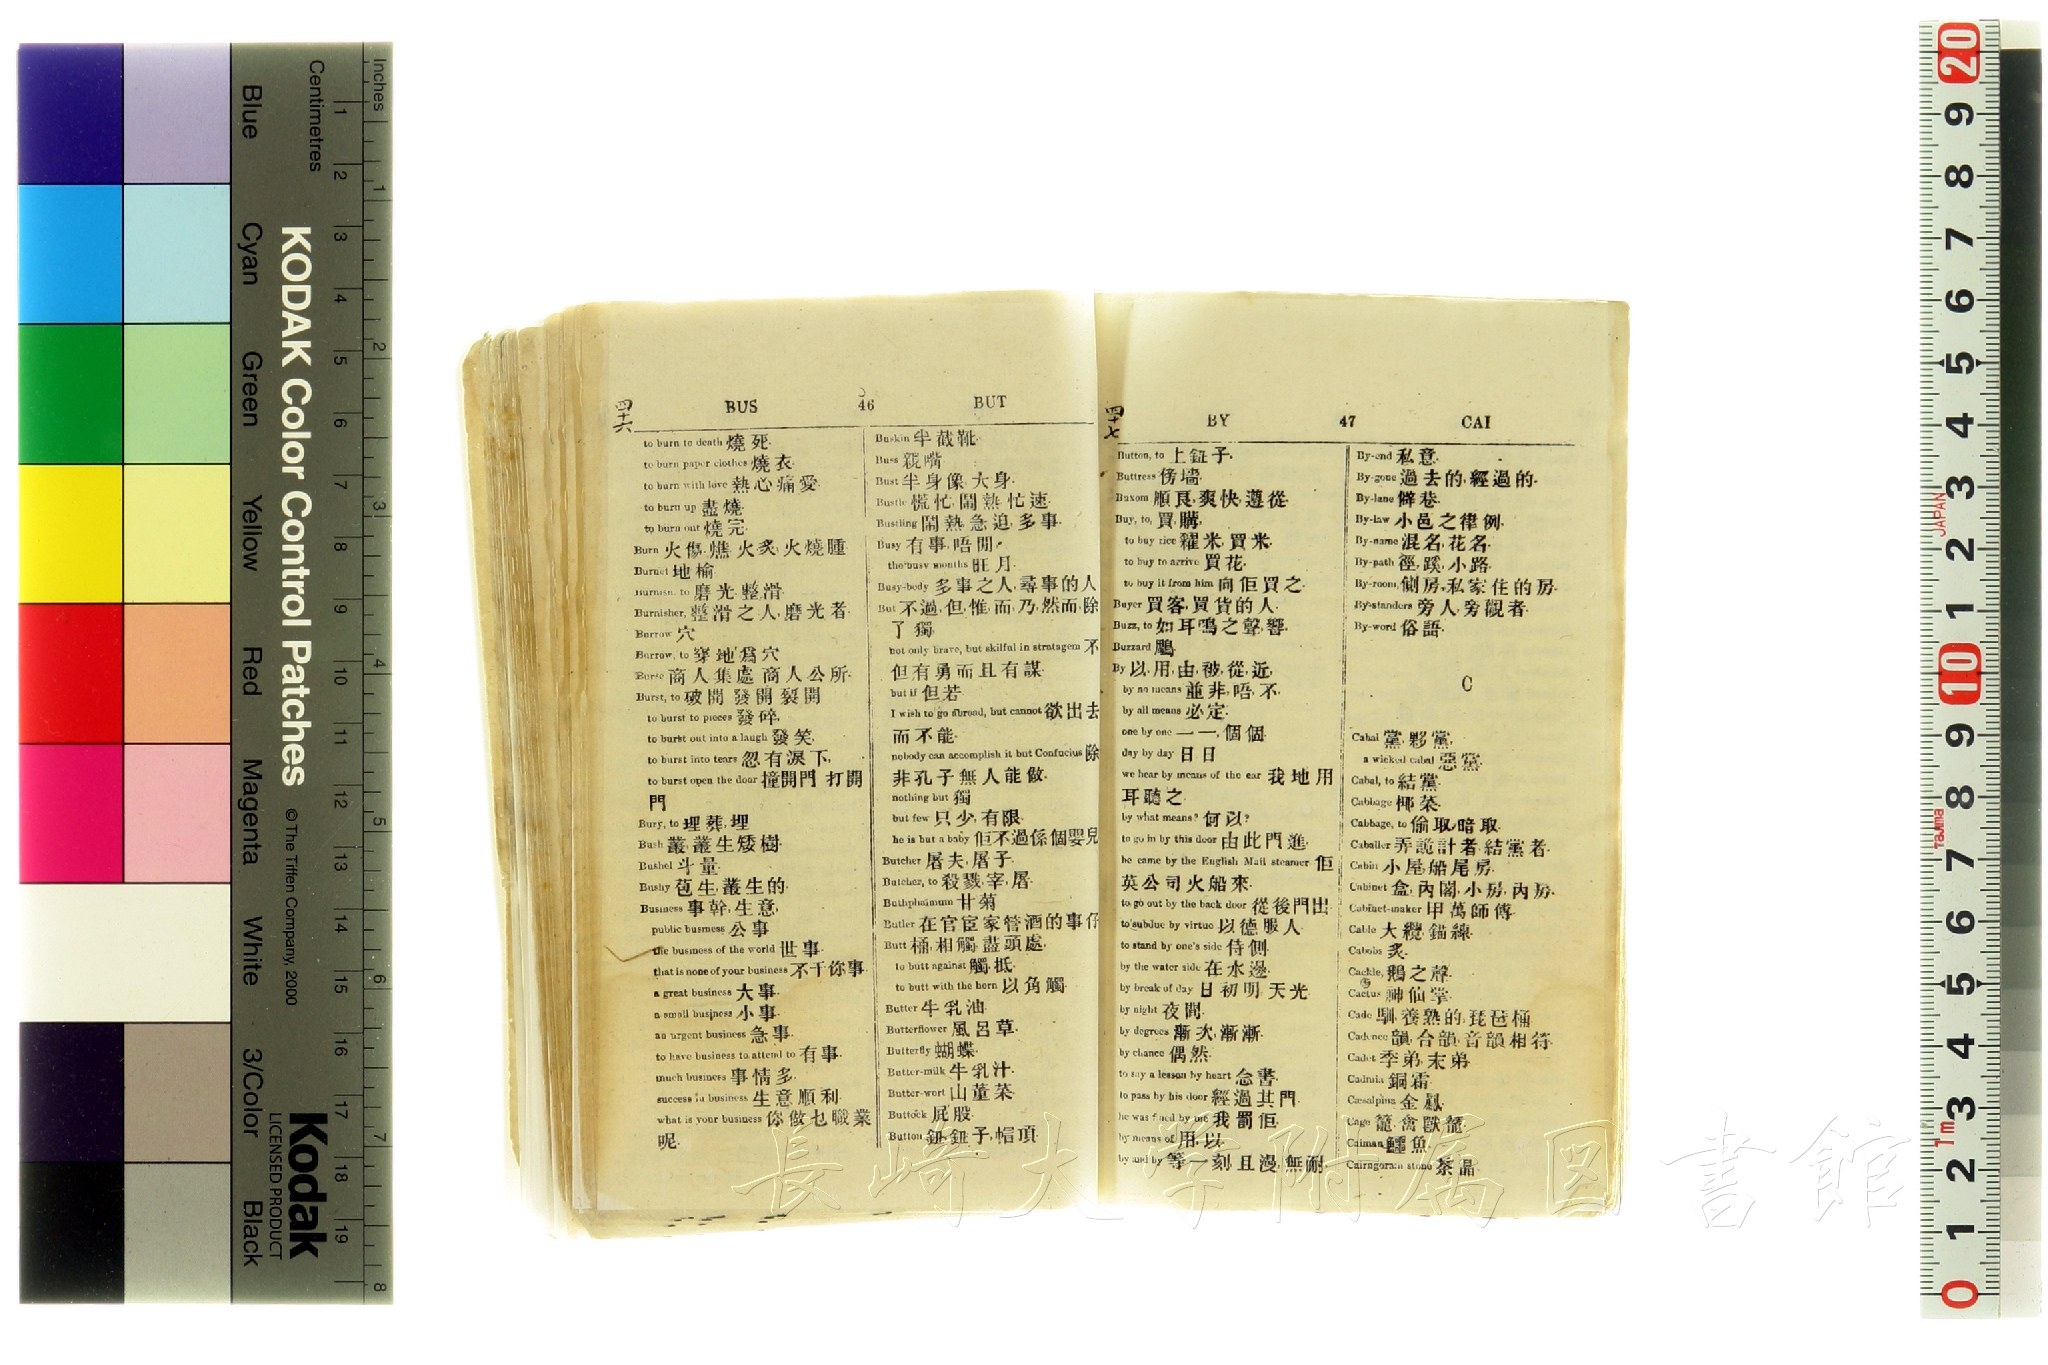 Inches
Centimetres
KODAK Color Control Patches
© The Tiffen Company, 2000
Kodak
LICENSED PRODUCT
Blue
Cyan
Green
Yellow
Red
Magenta
White
3/Color
Black
四十六
BUS 46 BUT
to burn to death 燒死.
to burn paper clothes 燒衣.
to burn with love 熱心痛愛.
to burn up 盡燒.
to burn out 燒完.
Burn 火傷, 燋, 火炙, 火燒腫.
Burnet 地榆.
Burnish, to 磨光, 整滑.
Burnisher, 整滑之人, 磨光者.
Burrow 穴.
Burrow, to 穿地爲穴.
Burse 商人集處, 商人公所.
Burst, to 破開, 發開, 裂開.
to burst to pieces 發碎.
to burst out into a laugh 發笑.
to burst into tears 忽有淚下.
to burst open the door 撞開門, 打開
門.
Bury, to 埋葬, 埋.
Bush 叢, 叢生矮樹.
Bushel 斗量.
Bushy 苞生, 叢生的.
Business 事幹, 生意.
public business 公事.
the business of the world 世事.
that is none of your business 不干你事.
a great business 大事.
a small business 小事.
an urgent business 急事.
to have business to attend to 有事.
much business 事情多.
success in business 生意順利.
what is your business 你做乜職業
呢.
Buskin 半截靴.
Buss 親嘴.
Bust 半身像, 大身.
Bustle 慌忙, 鬧熱, 忙速.
Bustling 鬧熱, 急迫, 多事.
Busy 有事, 唔閒.
the busy months 旺月.
Busy-body 多事之人, 尋事的人.
But 不過, 但, 惟, 而, 乃, 然而, 除
了, 獨.
not only brave, but skilful in stratagem 不
但有勇而且有謀.
but if 但若.
I wish to go abroad, but cannot 欲出去
而不能.
nobody can accomplish it but Confucius 除
非孔子無人能做.
nothing but 獨.
but few 只少, 有限.
he is but a baby 佢不過係個嬰兒
Butcher 屠夫, 屠子.
Butcher, to 殺戮, 宰, 屠.
Buthphalmum 甘菊.
Butler 在官宦家管酒的事仔
Butt 桶, 相觸, 盡頭處.
to butt against 觸抵.
to butt with the horn 以角觸.
Butter 牛乳油.
Butterflower 風呂草.
Butterfly 蝴蝶.
Butter-milk 牛乳汁.
Butter-wort 山菫菜.
Buttock 屁股.
Button 鈕, 鈕子, 帽頂.
四十七
BY 47 CAI
Button, to 上鈕子.
Buttress 傍墻.
Buxom 順良, 爽快, 遵從.
Buy, to, 買, 購.
to buy rice 糴米, 買米.
to buy to arrive 買花.
to buy it from him 向佢買之.
Buyer 買客, 買貨的人.
Buzz, to 如耳鳴之聲, 響.
Buzzard 鵰.
By 以, 用, 由, 被, 從, 近.
by no means 並非, 唔, 不.
by all means 必定.
one by one 一一, 個個.
day by day 日日.
we hear by means of the ear 我地用
耳聽之.
by what means? 何以?
to go in by this door 由此門進.
he came by the English Mail steamer 佢
英公司火船來.
to go out by the back door 從後門出.
to subdue by virtue 以德服人.
to stand by one's side 侍側.
by the water side 在水邊.
by break of day 日初明, 天光.
by night 夜間.
by degrees 漸次, 漸漸.
by chance 偶然.
to say a lesson by heart 念書.
to pass by his door 經過其門.
he was fined by me 我罰佢.
by means of 用, 以.
by and by 等一刻, 且漫, 無耐.
By-end 私意.
By-gone 過去的, 經過的.
By-lane 僻巷.
By-law 小邑之律例.
By-name 混名, 花名.
By-path 徑, 蹊, 小路.
By-room, 側房, 私家住的房.
By-standers 旁人, 旁觀者.
By-word 俗語.
C
Cabal 黨, 夥黨.
a wicked cabal 惡黨.
Cabal, to 結黨.
Cabbage 椰菜.
Cabbage, to 偷取, 暗取.
Caballer 弄詭計者, 結黨者.
Cabin 小屋, 船尾房.
Cabinet 盒, 內閣, 小房, 內房.
Cabinet-maker 甲萬師傅.
Cable 大纜, 錨線.
Cabobs 炙.
Cackle, 鵝之聲.
Cactus 神仙掌.
Cade 馴, 養熟的, 琵琶桶.
Cadence 韻, 合韻, 音韻相符.
Cadet 季弟, 末弟
Cadmia 銅霜.
Cæsalpina 金鳳.
Cage 籠, 禽獸籠.
Caiman 鱷魚.
Cairngoram stone 茶晶
長崎大学附属図書館
JAPAN
Tajima
1m